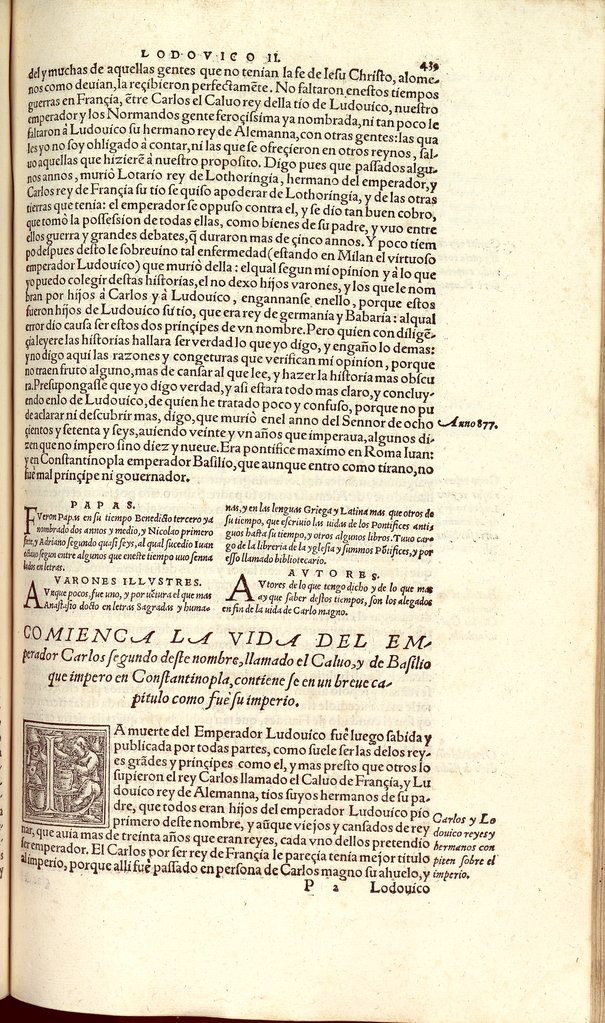 LODOVICO II.
439
del y muchas de aquellas gentes que no tenían la fe de Iesu Christo, alome-
nos como deuían, la reçibieron perfectamẽte. No faltaron enestos tiempos
guerras en Françía, ẽtre Carlos el Caluo rey della tío de Ludouíco, nuestro
emperador y los Normandos gente feroçissima ya nombrada, ni tan poco le
faltaron â Ludouíco su hermano rey de Alemanna, con otras gentes: las qua
les yo no soy obligado â contar, ni las que se ofreçieron en otros reynos, sal-
uo aquellas que hizierẽ â nuestro proposito. Digo pues que passados algu-
nos annos, murió Lotarío rey de Lothoríngía, hermano del emperador, y
Carlos rey de Françía su tío se quiso apoderar de Lothoríngía, y de las otras
tierras que tenía: el emperador se oppuso contra el, y se dío tan buen cobro,
que tomò la possession de todas ellas, como bienes de su padre, y vuo entre
ellos guerra y grandes debates, q̃ duraron mas de çinco annos. Y poco tiem
po despues desto le sobreuíno tal enfermedad (estando en Mílan el virtuoso
emperador Ludouíco) que murió della: el qual segun mi opinion y â lo que
yo puedo colegir destas historías, el no dexo hijos varones, y los que le nom
bran por híjos â Carlos y â Ludouíco, engannanse enello, porque estos
fueron híjos de Ludouíco su tío, que era rey de germanía y Babaría: al qual
error dío causa ser estos dos prínçipes de vn nombre. Pero quien con díligẽ-
çía leyere las historías hallara ser verdad lo que yo dígo, y engaño lo demas:
y no dígo aquí las razones y congeturas que verifican mi opinion, porque
no traen fruto alguno, mas de cansar al que lee, y hazer la historía mas obscu
ra. Presupongasse que yo dígo verdad, y asi estara todo mas claro, y concluy-
endo enlo de Ludouíco, de quíen he tratado poco y confuso, porque no pu
de aclarar ni descubrir mas, dígo, que murió enel anno del Sennor de ocho
çíentos y setenta y seys, auíendo veínte y vn años que imperaua, algunos dí-
zen que no impero sino díez y nueue. Era pontífice maximo en Roma Iuan:
y en Constantínopla emperador Basilío, que aunque entro como tirano, no
fuê mal prínçipe ni gouernador.
Anno 877.
PAPAS.
FVeron Papas en su tiempo Benedicto tercero ya
nombrado dos annos y medio, y Nicolao primero
siete, y Adriano segundo quasi seys, al qual sucedio Iuan
octauo segun entre algunos que eneste tiempo uuo senna
lados en letras.
VARONES ILLVSTRES.
AVnque pocos, fue uno, y por uẽtura el que mas
Anastasio docto en letras Sagradas y huma-
nas, y en las lenguas Griega y Latina mas que otros de
su tiempo, que escriuio las uidas de los Pontifices anti
guos hasta su tiempo, y otros algunos libros. Tuuo car-
go de la libreria de la yglesia y summos Põtifices, y por
esso llamado bibliotecario.
AVTORES.
AVtores de lo que tengo dicho y de lo que mas
ay que saber destos tiempos, son los alegados
en fin de la uida de Carlo magno.
COMIENCA LA VIDA DEL EM-
perador Carlos segundo deste nombre, llamado el Caluo, y de Basilio
que impero en Constantinopla, contiene se en un breue ca-
pitulo como fuè su imperio.
LA muerte del Emperador Ludouíco fuê luego sabída y
publicada por todas partes, como suele ser las delos rey-
es grãdes y prínçipes como el, y mas presto que otros lo
supieron el rey Carlos llamado el Caluo de Françía, y Lu
douíco rey de Alemanna, tíos suyos hermanos de su pa-
dre, que todos eran híjos del emperador Ludouíco pío
primero deste nombre, y aũque viejos y cansados de rey
nar, que auía mas de treínta años que eran reyes, cada vno dellos pretendío
ser emperador. El Carlos por ser rey de Françía le pareçía tenía mejor titulo
al imperio, porque alli fuê passado en persona de Carlos magno su ahuelo, y
Carlos y Lo
douico reyes y
hermanos con
piten sobre el
imperio.
P a
Lodouico